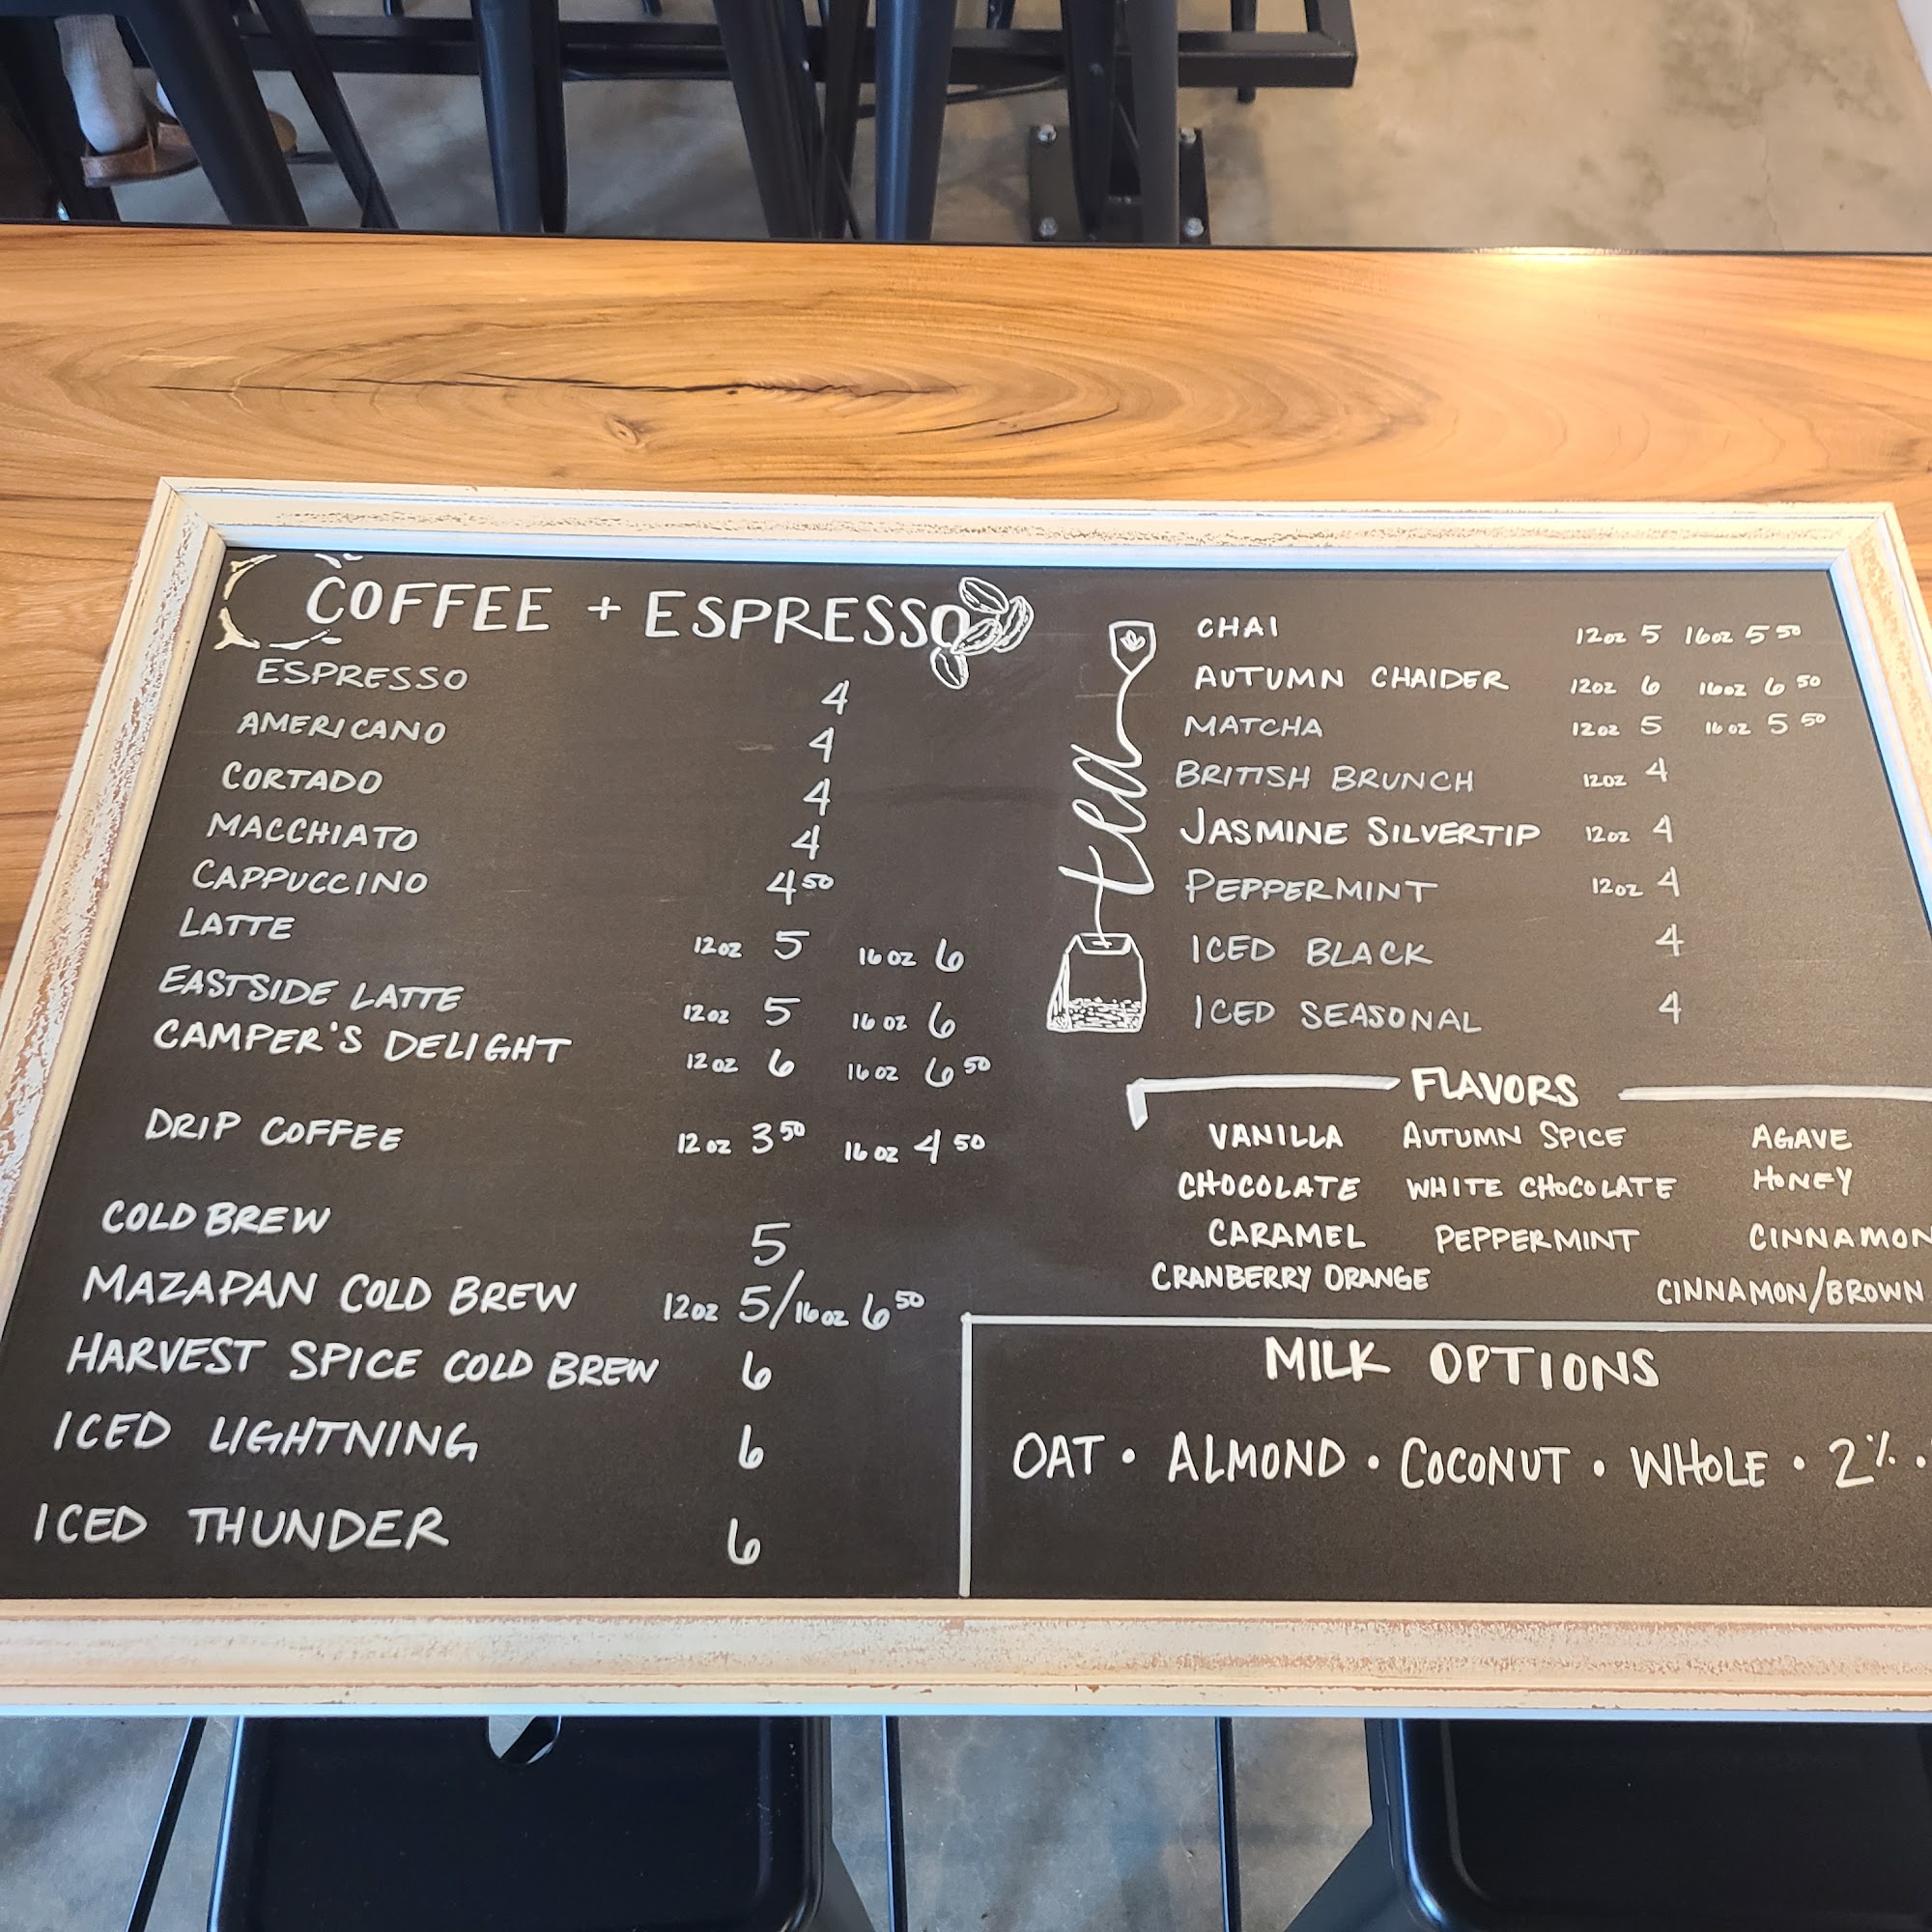 COFFEE + ESPRESSO
ESPRESSO 4
AMERICANO 4
CORTADO 4
MACCHIATO 4
CAPPUCCINO 4 50
LATTE 12oz 5 16oz 6
EASTSIDE LATTE 12oz 5 16oz 6
CAMPER'S DELIGHT 12oz 6 16oz 6 50
DRIP COFFEE 12oz 3 50 16oz 4 50
COLD BREW 5
MAZAPAN COLD BREW 12oz 5/16oz 6 50
HARVEST SPICE COLD BREW 6
ICED LIGHTNING 6
ICED THUNDER 6
tea
CHAI 12oz 5 16oz 5 50
AUTUMN CHAIDER 12oz 6 16oz 6 50
MATCHA 12oz 5 16oz 5 50
BRITISH BRUNCH 12oz 4
JASMINE SILVERTIP 12oz 4
PEPPERMINT 12oz 4
ICED BLACK 4
ICED SEASONAL 4
FLAVORS
VANILLA AUTUMN SPICE AGAVE
CHOCOLATE WHITE CHOCOLATE HONEY
CARAMEL PEPPERMINT CINNAMON
CRANBERRY ORANGE CINNAMON/BROWN
MILK OPTIONS
OAT • ALMOND • COCONUT • WHOLE • 2% •